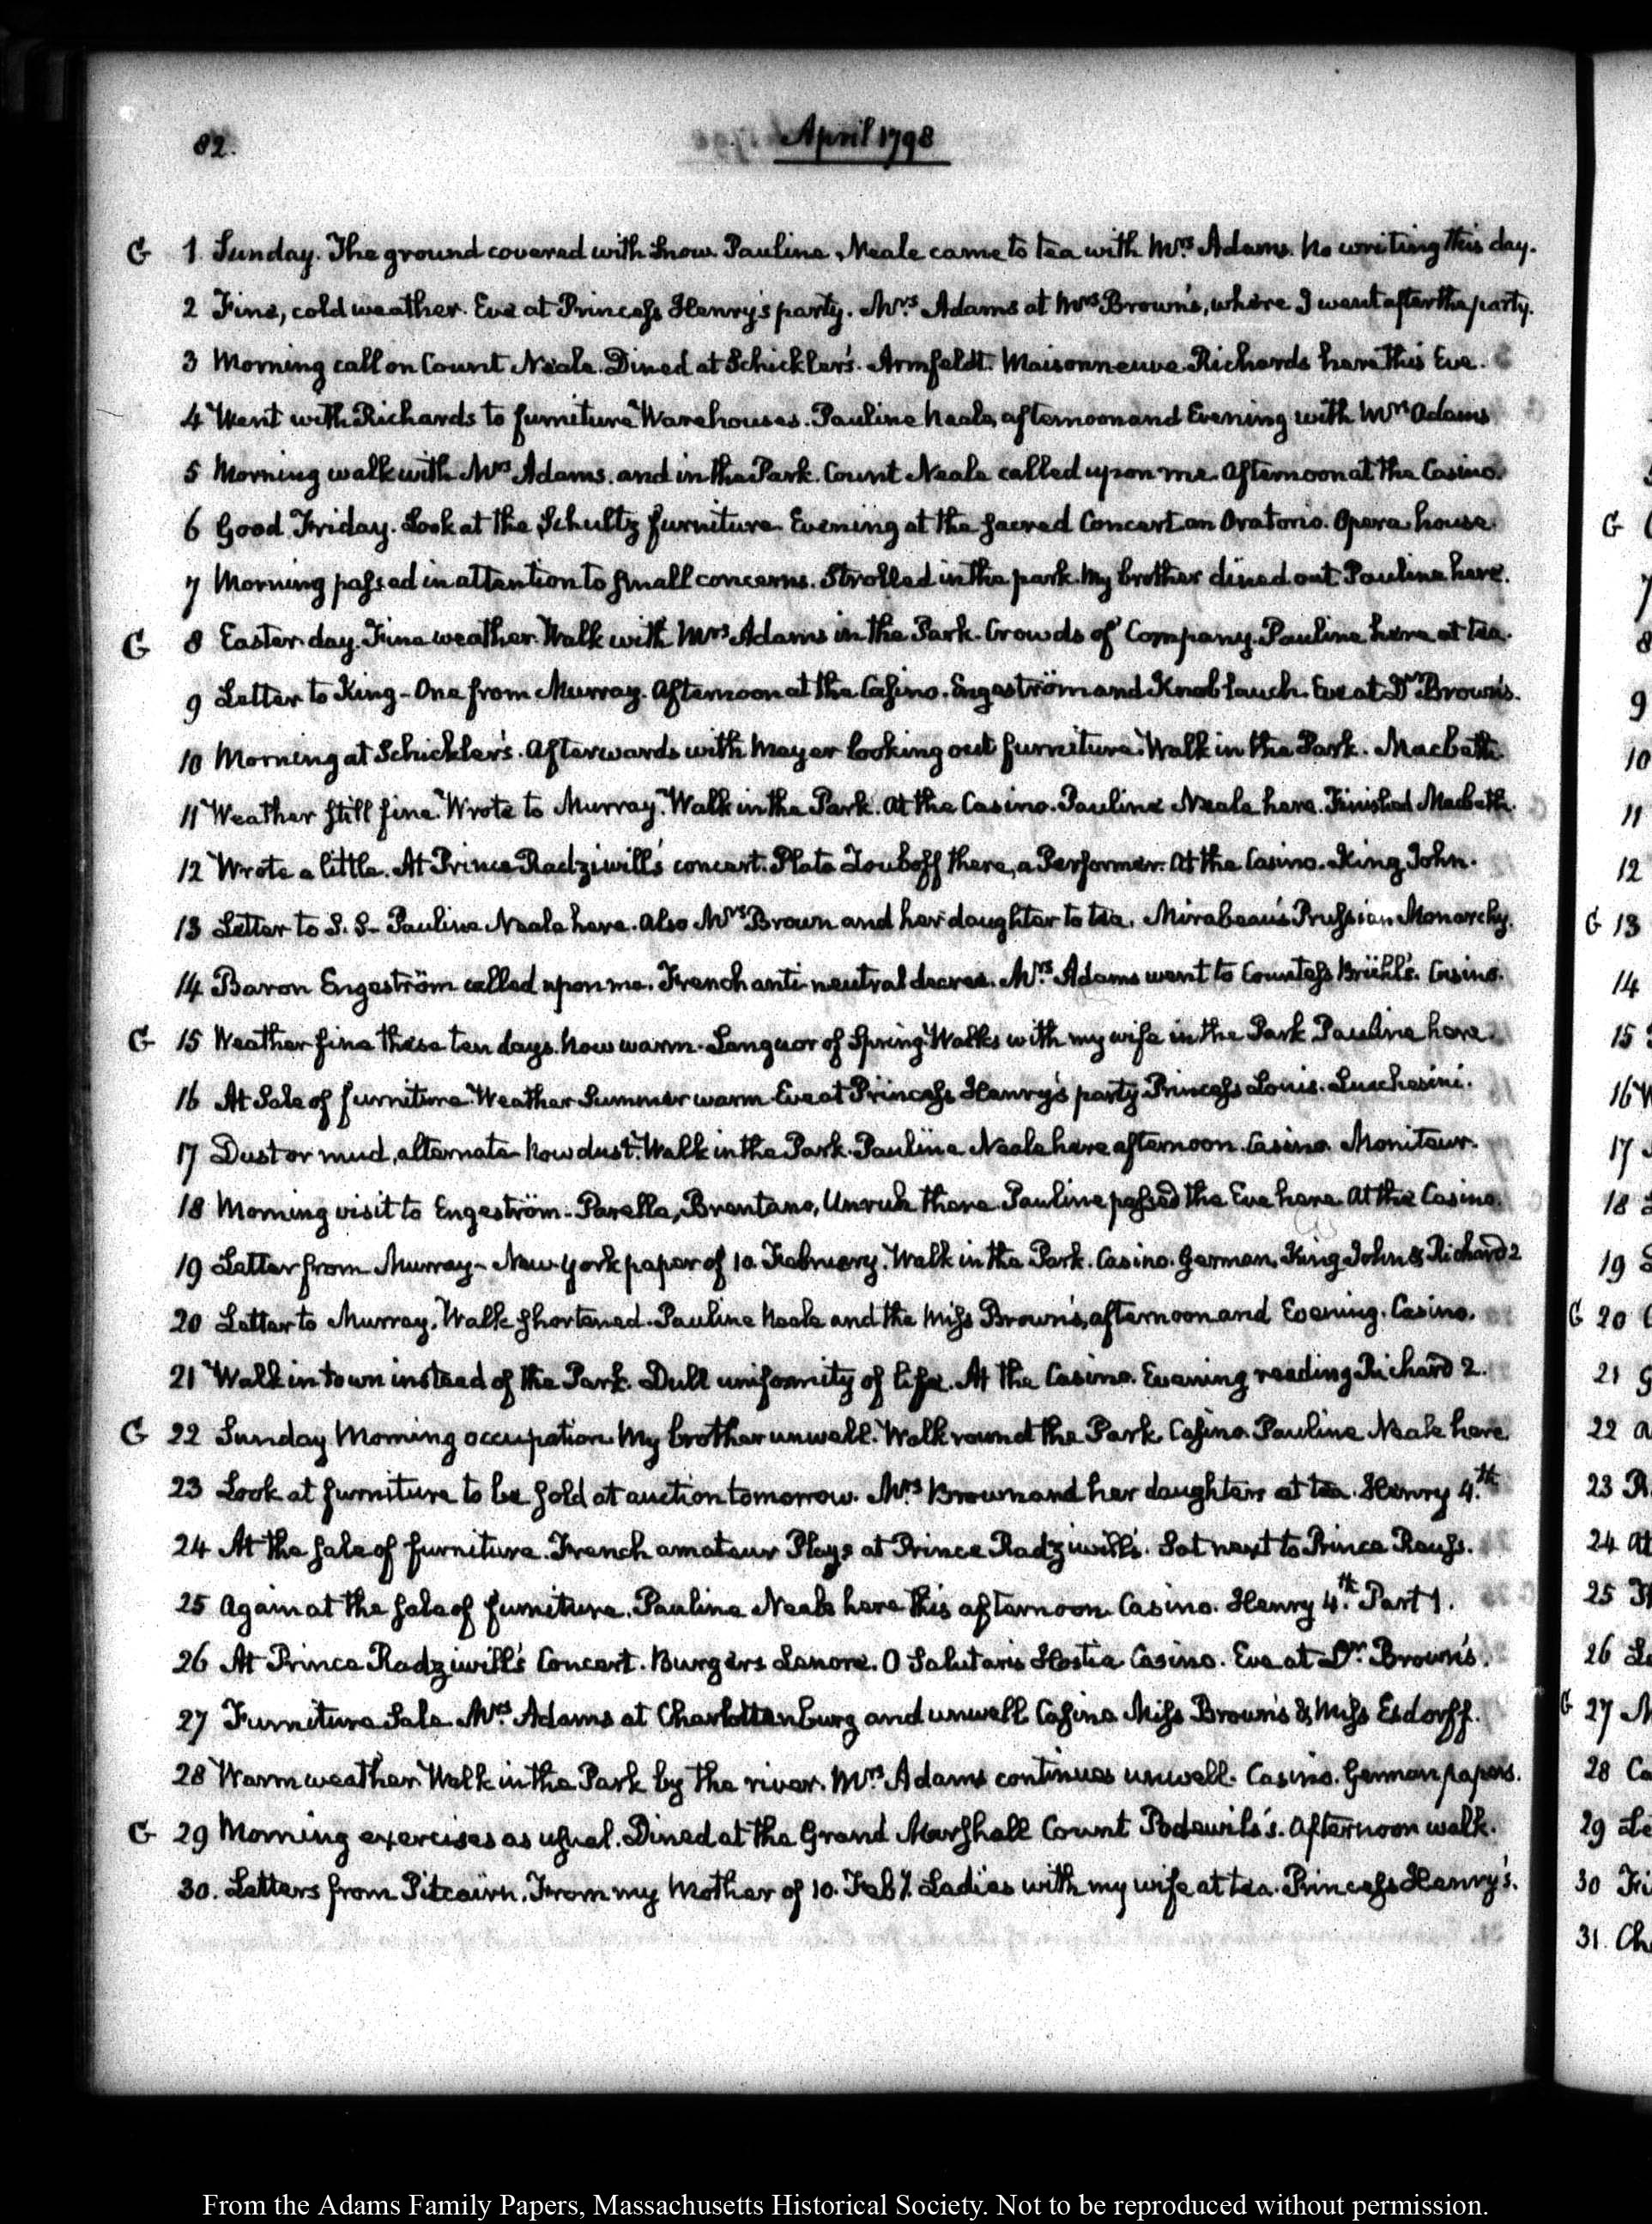 82.
April 1798
G 1. Sunday. The ground covered with Snow. Pauline Neale came to tea with Mrs. Adams. No writing this day.
2 Fine, cold weather. Eve at Princess Henry's party. Mrs. Adams at Mrs. Brown's, where I went after the party.
3 Morning call on Count Neale. Dined at Schickler's. Armfeldt. Maisonneuve. Richards here this Eve.
4 Went with Richards to furniture Warehouses. Pauline Neale, afternoon and Evening with Mrs. Adams
5 Morning walk with Mrs. Adams. and in the Park. Count Neale called upon me. Afternoon at the Casino.
6 Good Friday. Look at the Schultz furniture. Evening at the sacred Concert an Oratorio. Opera house.
7 Morning passed in attention to small concerns. Strolled in the park. My brother dined out. Pauline here.
G 8 Easter day. Fine weather. Walk with Mrs. Adams in the Park. Crowds of Company. Pauline here at tea.
9 Letter to King - One from Murray. Afternoon at the Casino. Engeström and Knoblauch. Eve at Dr. Brown's.
10 Morning at Schickler's. Afterwards with Mayer looking out furniture. Walk in the Park. Macbeth.
11 Weather still fine. Wrote to Murray. Walk in the Park. At the Casino. Pauline Neale here. Finished Macbeth.
12 Wrote a little. At Prince Radziwill's concert. Plato Zouboff there, a Performer. At the Casino. King John.
13 Letter to S. S. - Pauline Neale here. Also Mrs. Brown and her daughter to tea. Mirabeau's Prussian Monarchy.
14 Baron Engeström called upon me. French anti-neutral decree. Mrs. Adams went to Countess Brühl's. Casino.
G 15 Weather fine these ten days. Now warm. Languor of Spring. Walks with my wife in the Park. Pauline here.
16 At Sale of furniture. Weather Summer warm. Eve at Princess Henry's party. Princess Louis. Lucchesini.
17 Dust or mud, alternate. Now dust. Walk in the Park. Pauline Neale here afternoon. Casino. Moniteur.
18 Morning visit to Engeström. Parella, Brentano, Unruh there. Pauline passed the Eve here. At the Casino.
19 Letter from Murray - New-York paper of 10. February. Walk in the Park. Casino. German. King John & Richard 2
20 Letter to Murray. Walk shortened. Pauline Neale and the Miss Brown's, afternoon and Evening. Casino.
21 Walk in town instead of the Park. Dull uniformity of life. At the Casino. Evening reading Richard 2.
G 22 Sunday Morning occupation. My brother unwell. Walk round the Park. Casino. Pauline Neale here
23 Look at furniture to be sold at auction tomorrow. Mrs. Brown and her daughters at tea. Henry 4.th
24 At the sale of furniture. French amateur Plays at Prince Radziwill's. Sat next to Prince Reuss.
25 Again at the sale of furniture. Pauline Neale here this afternoon. Casino. Henry 4.th Part 1.
26 At Prince Radziwill's Concert. Burgers Lenore. O Salutaris Hostia. Casino. Eve at Dr. Brown's.
27 Furniture Sale. Mrs. Adams at Charlottenburg and unwell. Casino. Miss Brown's & Miss Esdorff.
28 Warm weather. Walk in the Park by the river. Mrs. Adams continues unwell. Casino. German papers.
G 29 Morning exercises as usual. Dined at the Grand Marshall Count Podewils's. Afternoon walk.
30. Letters from Pitcairn. From my Mother of 10. Feby. Ladies with my wife at tea. Princess Henry's.
From the Adams Family Papers, Massachusetts Historical Society. Not to be reproduced without permission.